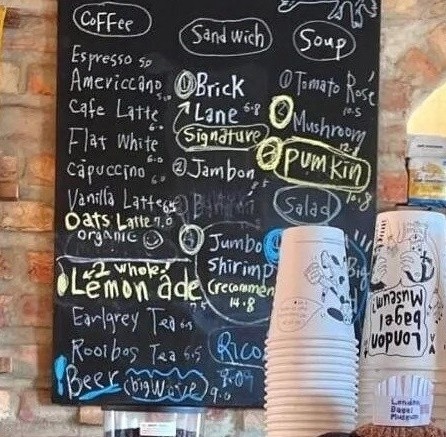 Coffee
Espresso 5.0
Americcano 5.0
Cafe Latte 6.0
Flat White 6.0
Cappuccino 6.0
Vanilla Latte 6.5
Oats Latte 7.0
organic
2 whole
Lemon ade 7.5
Earlgrey Tea 6.5
Rooibos Tea 6.5
Beer (bigwave) 9.0
Sandwich
① Brick
Lane 6.8
Signature
② Jambon
Jumbo
Shirimp
(recommen
14.8
Rico
Soup
① Tomato Rosé
10.5
② Mushroom
12.8
③ Pumkin
10.8
Salad
Big
London
bagel
Museum
London
Bagel
Museum